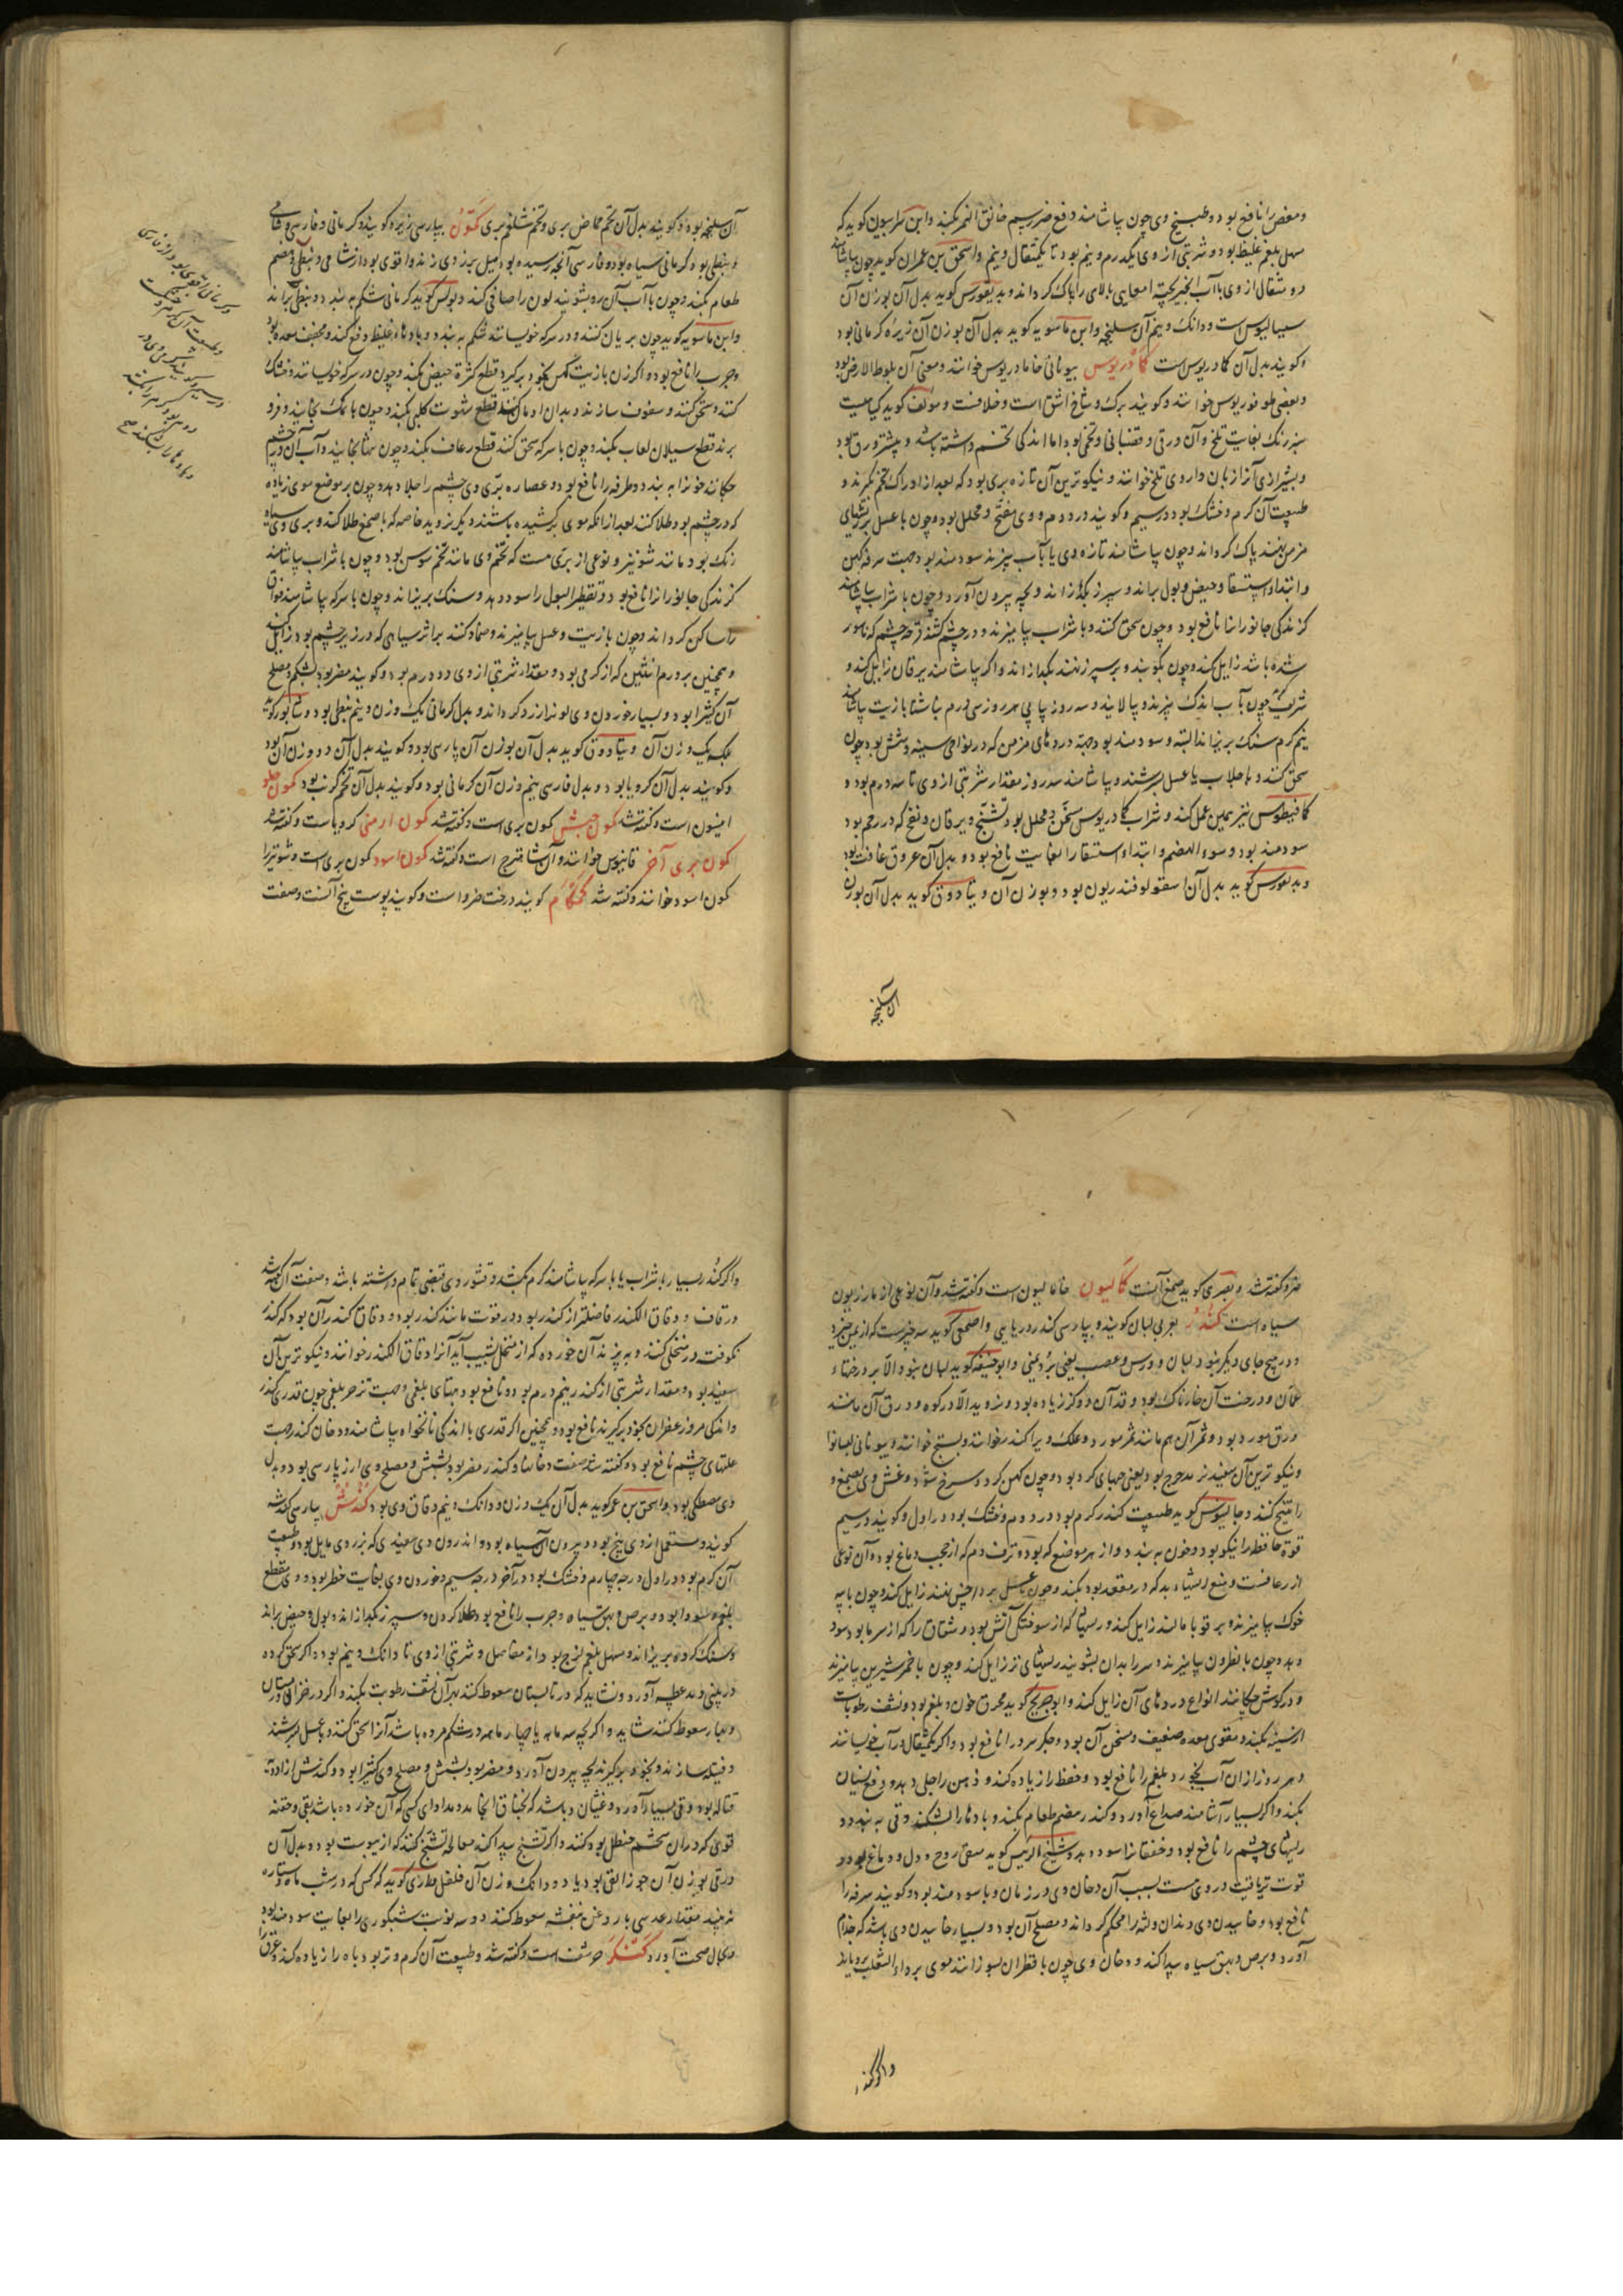 ومغص را نافع بود و طبیخ وی چون بیاشامند دفع ضرر سم خانق النمر بکند وابن سرابیون کوید که
مسهل بلغم غلیظ بود و شربتی از وی یکدرم و نیم بود تا یکمثقال و نیم واسحق بن عمران کوید چون بیاشامند
دو مثقال از وی با آب انجیر پخته امعایی بالایی را پاک کرداند و دیسقوریدس کوید بدل آن بوزن آن
سیسالیوس است و دانک و نیم آن سلیخه وابن ماسویه کوید بدل آن بوزن آن زیره کرمانی بود
و کویند بدل آن کمادریوس است کمادریوس بیونانی خامادریوس خوانند و معنی آن بلوط الارض بود
و بعضی طوقوریوس خوانند و کویند برک و شاخ اشق است و خلافست و مولف کوید کیاهیست
سبز رنک بغایت تلخ و آن ورقی و قضبانی و تخمی بود اما اندکی تخم داشته باشد و بیشتر ورق بود
و بشیرازی آنرا زبان داروی تلخ خوانند و نیکوترین آن تازه بری بود که بعد از ادراک تخم بکیرند و
طبیعت آن کرم و خشک بود در سیم و کویند در دوم و وی مفتح و محلل بود و چون با عسل بر ریشهای
مزمن نهند پاک کرداند و چون بیاشامند تازه وی یا با آب بپزند سودمند بود جهت سرفه کهن
و ابتداء استسقا و حیض و بول براند و سپرز بکدازاند و بچه بیرون آورد و چون با شراب بیاشامند
کزندکی جانورانرا نافع بود و چون سحق کنند و با شراب بیامیزند و در چشم کشند قرحه چشم که ناسور
شده باشد زایل کند و چون بکوبند و بر سپرز نهند بکدازاند و اکر بیاشامند یرقان زایل کند و
نیم کرم سنک بریزاند البته و سودمند بود جهة دردهای مزمن که در نواحی سینه و شش بود و چون
سحق کنند و با جلاب یا عسل بسرشند و بیاشامند سه روز مقدار شربتی از وی تا سه درم بود و
کمافیطوس نیز همین عمل کند و شراب کمادریوس مسخن و محلل بود و تشنج و یرقان و نفخ که در رحم بود
سودمند بود و سوء الهضم و ابتداء استسقا را بغایت نافع بود و بدل آن عروق غافت بود
و دیسقوریدس کوید بدل آن اسقولوفندریون بود و بوزن آن و بنادوق کوید بدل آن بوزن
آن سلیخه
آن سلیخه بود و کویند بدل آن تخم حماض بری و تخم شلغم بری کمون بپارسی زیره کویند و کرمانی و فارسی و شامی
و نبطی بود کرمانی سیاه بود و فارسی آنچه رسیده بود میل بزردی زند و اقوی بود از شامی و نبطی و هضم
طعام بکند و چون با آب آن رو بشویند لون را صافی کند و بولس کوید کرمانی شکم ببندد و نبطی براند
وابن ماسویه کوید چون بریان کنند و در سرکه خوبسانند شکم ببندد و بادهاء غلیظ دفع کند و مجفف معده بود
وجرب را نافع بود و اکر زن با زیت کهن بخود برکیرد قطع کثرة حیض بکند و چون در سرکه خوبسانند و خشک
کنند و سحق کنند و سفوف سازند و بدان ادمان کنند قطع شهوت کلی بکند و چون با نمک بخایند و فرو
برند قطع سیلان لعاب بکند و چون با سرکه سحق کنند قطع رعاف بکند و چون تنها بخایند و آب آن در چشم
چکانند خونرا ببندد و طرفه را نافع بود و عصاره بری وی چشم را جلا دهد و چون بر موضع موی زیاده
که در چشم بود طلا کنند بعد از آنکه موی برکشیده باشند دیکر نروید خاصه که با صمغ طلا کنند و بری وی سیاه
رنک بود مانند شونیز و نوعی از بری هست که تخم وی مانند تخم سوس بود و چون با شراب بیاشامند
کزندکی جانورانرا نافع بود و تقطیر البول را سود دهد و سنک بریزاند و چون با سرکه بیاشامند فواق
را ساکن کرداند و چون با زیت و عسل بیامیزند و ضماد کنند بر اثر سیاهی که در زیر چشم بود زایل کند
و همچنین بر ورم انثیین که از کرمی بود و مقدار شربتی از وی دو درم بود و کویند مضر بود بشکم و مصلح
آن کتیرا بود و بسیار خوردن وی لون زرد کرداند و بدل کرمانی یک وزن و نیم نبطی بود و شابور کوید
و کویند بدل آن کرویا بود و بدل فارسی نیم وزن آن کرمانی بود و کویند بدل آن تخم کرنب بود کمون حلو
انیسون است و کفته شد کمون حبشی کمون بری است و کفته شد کمون ارمنی کرویاست و کفته شد
کمون بری آخر قانبوس خوانند و آن شاهترج است و کفته شد کمون اسود کمون بری است و شونیزرا
کمون اسود خوانند و کفته شد کمکام کویند درخت ضرو است و کویند پوست بیخ آنست و صفت
ضرو کفته شد و بصری کوید صمغ آنست کمالیون خامالیون است و کفته شد و آن نوعی از مازریون
سیاه است کندر بعربی لبان کویند و بپارسی کندر دریایی واصمعی کوید سه چیزست که از یمن خیزد
و در هیچ جای دیکر نبود لبان و ورس و عصب یعنی برد یمنی و ابوحنیفه کوید لبان نبود الا بر درختهاء
عمان و درخت آن خارناک بود و قد آن دو کز زیاده نبود و نروید الا در کوه و ورق آن مانند
ورق مورد بود و ثمر آن هم مانند ثمر مورد و علک ویرا کندر خوانند و بستج خوانند و بیونانی لیبانو
و نیکوترین آن سفید نر مدحرج بود یعنی حبهای کرد بود و چون کهن کردد سرخ شود و غش وی بصمغ و
را تینج کنند و جالینوس کوید طبیعت کندر کرم بود در دوم و خشک بود در اول و کویند در سیم
قوة حافظه را نیکو بود و خون ببندد و از هر موضع که بود و نزف دم که از حجب دماغ بود و آن نوعی
از رعافست و منع ریشهاء بد که در مقعد بود بکند و چون با عسل بر داخس نهند زایل کند و چون با پیه
خوک بیامیزند و بر قوبا مالند زایل کند و ریشهایی که از سوختکی آتش بود و شقاق را که از سرما بود سود
دهد و چون با نطرون بیامیزند و سر را بدان بشویند ریشهای تر زایل کند و چون با خمر شیرین بیامیزند
و در کوش چکانند انواع دردهای آن زایل کند و ابو جریج کوید محرق خون و بلغم بود و نشف رطوبات
از سینه بکند و مقوی معده ضعیف و مسخن آن بود و جکر سرد را نافع بود و اکر یکمثقال در آب خوبسانند
و هر روز از آن آب بخورد بلغم را نافع بود و حفظ را زیاده کند و ذهن را جلی دهد و دفع نسیان
بکند و اکر بسیار آشامند صداع آورد و کندر هضم طعام بکند و بادها را بشکند و قی ببندد و
ریشهای چشم را نافع بود و خفقانرا سود دهد و شیخ الرئیس کوید مقوی روح و دل و دماغ بود و
قوت تریاقیت در وی هست بسبب آن دخان وی در زمان وبا سودمند بود و کویند سرفه را
نافع بود و خاییدن وی دندان و لثه را محکم کرداند و مصلح آن بود و بسیار خاییدن وی باشد که جذام
آورد و برص و بهق سیاه پیدا کند و دخان وی چون با قطران بسوزانند موی بر داء الثعلب برویاند
و اکر کندر
واکر کندر بسیار با شراب یا با سرکه بیاشامند کرم بکشد و قشور وی قبضی تمام داشته باشد و صفت آن کفته شد
در قاف و دقاق الکندر فاضلتر از کندر بود و در قوت مانند کندر بود و دقاق کندر آن بود که کندر
نکوفته در منخلی کنند و به بیزند آن خورده که از منخل بشیب آید آنرا دقاق الکندر خوانند و نیکوترین آن
سفید بود و مقدار شربتی از کندر نیم درم بود و نافع بود جهة تبهای بلغمی و جهت تزحر بلغمی چون قدری کندر
و اندکی مرو زعفران بخود برکیرند نافع بود و همچنین اکر قدری با اندکی نانخواه بیاشامند و دخان کندر جهت
علتهای چشم نافع بود و کفته شد صفت دخانها و کندر مضر بود بشش و مصلح وی ارز پارسی بود و بدل
وی مصطکی بود و اسحق بن عمر کوید بدل آن یک وزن و دو دانک و نیم دقاق وی بود کندش بپارسی کندشه
کویند و مستعمل از وی بیخ بود و بیرون آن سیاه بود و اندرون وی سفیدی که بزردی مایل بود و طبیعت
آن کرم بود در اول درجه چهارم و خشک بود در آخر درجه سیم و خوردن وی بغایت خطر بود و وی مقطع
بلغم و سودا بود و برص و بهق سیاه و جرب را نافع بود طلا کردن و سپرز بکدازاند و بول و حیض براند
وسنک کرده بریزاند و مسهل بلغم لزج بود از مفاصل و شربتی از وی تا دانک و نیم بود و اکر سحق کرده
در بینی دمد عطسه آورد و نشاید که در تابستان سعوط کنند بهر آن نشف رطوبت بکند و اکر در خزان و زمستان
و بهار سعوط کنند شاید و اکر بچه سه ماهه یا چهار ماهه در شکم مرده باشد آنرا سحق کنند و بعسل بسرشند
و فتیله سازند و بخود برکیرند بچه بیرون آورد و مضر بود بشش و مصلح وی کتیرا بود و کندش از ادویه
قتاله بود و قی بسیار آورد و غثیان و باشد که بخناق انجامد و مداوای کسی که آن خورده باشد بقی و حقنه
قوی که در آن شحم حنظل بود کنند و اکر تشنج پیدا کند معالجه تشنج کنند که از یبوست بود و بدل آن
در قی بوزن آن جوز القی بود یا دو دانک وزن آن فلفل و رازی کوید که کسی که در شب ماه و ستاره
نه بیند مقدار عدسی با روغن بنفشه سعوط کنند دو سه نوبت شبکوری را بغایت سودمند بود
و بحال صحت آورد کنکر حرشف است و کفته شد و طبیعت آن کرم و تر بود و باه را زیاده کند و عرق را